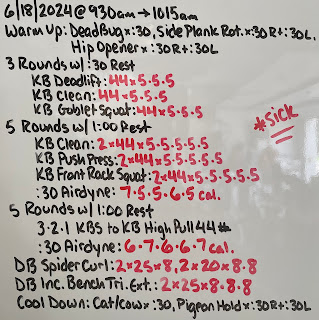 6/18/2024 @ 930am → 1015am
Warm Up: Dead Bug x :30, Side Plank Rot. x :30 R + :30 L,
Hip Opener x :30 R + :30 L
3 Rounds w/ :30 Rest
KB Deadlift: 44 x 5.5.5
KB Clean: 44 x 5.5.5
KB Goblet Squat: 44 x 5.5.5
*sick
5 Rounds w/ 1:00 Rest
KB Clean: 2x44 x 5.5.5.5.5
KB Push Press: 2x44 x 5.5.5.5.5
KB Front Rack Squat: 2x44 x 5.5.5.5.5
:30 Airdyne: 7.5.5.6.5 cal.
5 Rounds w/ 1:00 Rest
3.2.1 KBS to KB High Pull 44#
:30 Airdyne: 6.7.6.6.7 cal.
DB Spider Curl: 2x25x8, 2x20x8.8
DB Inc. Bench Tri. Ext.: 2x25x8.8.8
Cool Down: Cat/Cow x :30, Pigeon Hold x :30 R + :30 L